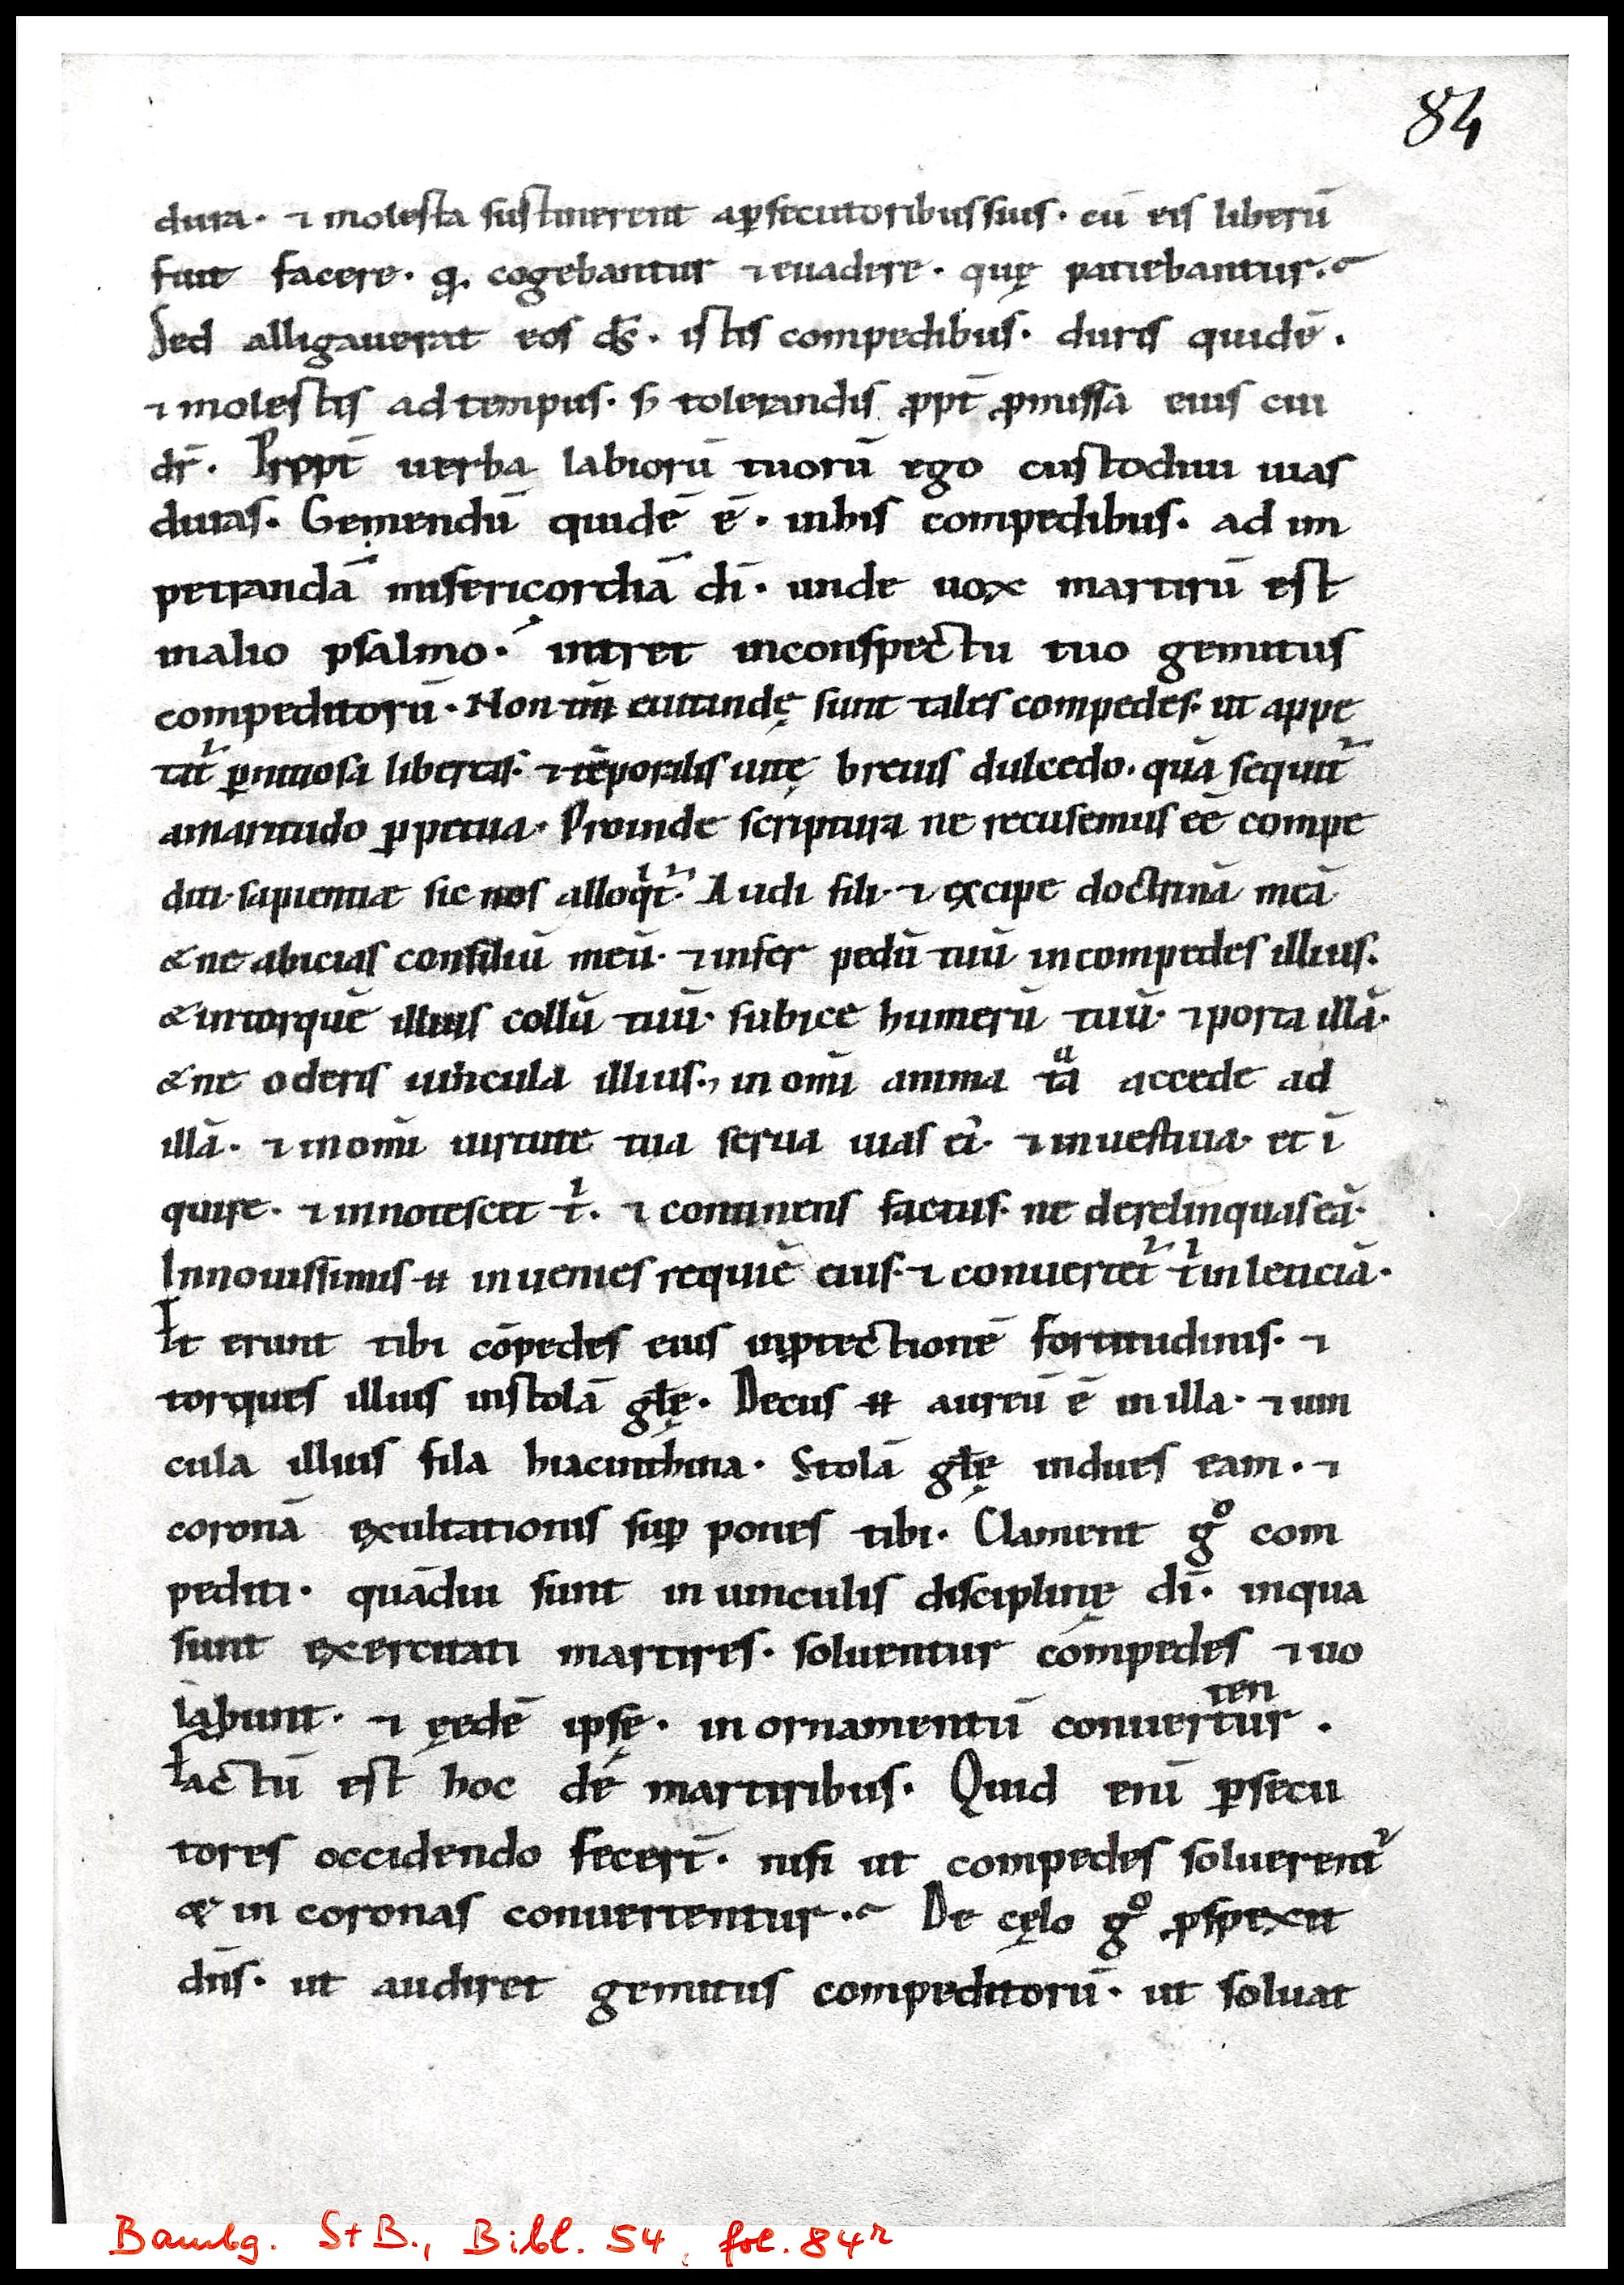 84
dura· ⁊ molesta sustinerent aꝑsecutoribus suis· cū eis liberū
fuit facere· q̨· cogebantur ⁊ euadere· quę patiebantur·
Sed alligauerat eos ds̄· istis compedibus· duris quidē·
⁊ molestis ad tempus· s; tolerandis ꝓpt̄ ꝓmissa eius cui
dr̄· Propt̄ uerba labiorū tuorū ego custodiui uias
duras· Gemendū quidē ē· inhis compedibus· ad im
petrandā misericordiā dī· unde uox martirū est
inalio psalmo· intret inconspectu tuo gemitus
compeditorū· Non tm̄ euitandę sunt tales compedes· ut appe
tat᷑ ꝑniciosa libertas· ⁊ tēporalis uitę breuis dulcedo· quā sequit᷑
amaritudo ꝑpetua· Proinde scriptura ne recusemus eē compe
diti· sapientiæ sic nos alloqͥt᷑· Audi fili· ⁊ excipe doctrinā meā
& ne abicias consiliū meū· ⁊ infer pedū tuū incompedes illius·
& intorquē illius collū tuū· subice humerū tuū· ⁊ porta illā·
& ne oderis uincula illius· in om̄i anima tᵃa accede ad
illā· ⁊ inom̄i uirtute tua serua uias ei᷒· ⁊ inuestiua· et ī
quire· ⁊ innotescet tͥ· ⁊ continens factus· ne derelinquas eā·
Innouissimis ⁊̄ inuenies requiē eius· ⁊ conuertet᷑ tͥ inleticiā·
It erunt tibi cōpedes eius inꝓtectionē fortitudinis· ⁊
torques illius instolā głę· Decus ⁊̄ aureū ē in illa· ⁊ uin
cula illius fila hiacinthina· Stolā głę indues eam· ⁊
coronā excultationis suꝑ pones tibi· Clament gͦ com
pediti· quādiu sunt in uinculis disciplinę dī· inqua
sunt exercitati martires· soluentur compedes ⁊ uo
labunt· ⁊ ęedē ipsę· in ornamentū conuertur·
ten
Factū est hoc de martiribus· Quid enī ꝑsecu
tores occidendo fecert̄· nisi ut compedes soluerent᷑
& in coronas conuertentur· De cęlo gͦ ꝓspexit
dn̄s· ut audiret gemitus compeditorū· ut soluat
Bambg. StB., Bibl. 54, fol. 84ʳ